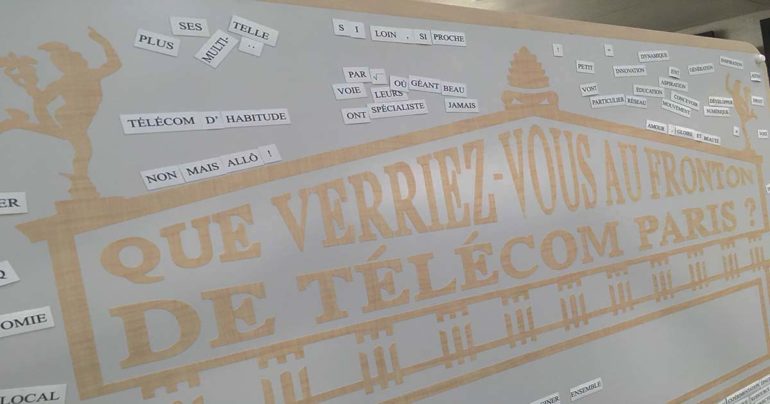 SES TELLE
PLUS MULTI-
SI LOIN , SI PROCHE
PAR OÙ GÉANT BEAU
VOIE LEURS
ONT SPÉCIALISTE JAMAIS
TÉLÉCOM D' HABITUDE
NON MAIS ALLÔ !
! =
PETIT DYNAMIQUE
INNOVATION ENT GÉNÉRATION INSPIRATION
VONT ÉDUCATION ASPIRATION
PARTICULIER RÉSEAU CONCEVOIR DÉVELOPPER DROIT
MOUVEMENT NUMÉRIQUE
AMOUR , GLOIRE ET BEAUTÉ
QUE VERRIEZ-VOUS AU FRONTON
DE TÉLÉCOM PARIS ?
ER
Q
OMIE
LOCAL
INER ENSEMBLE